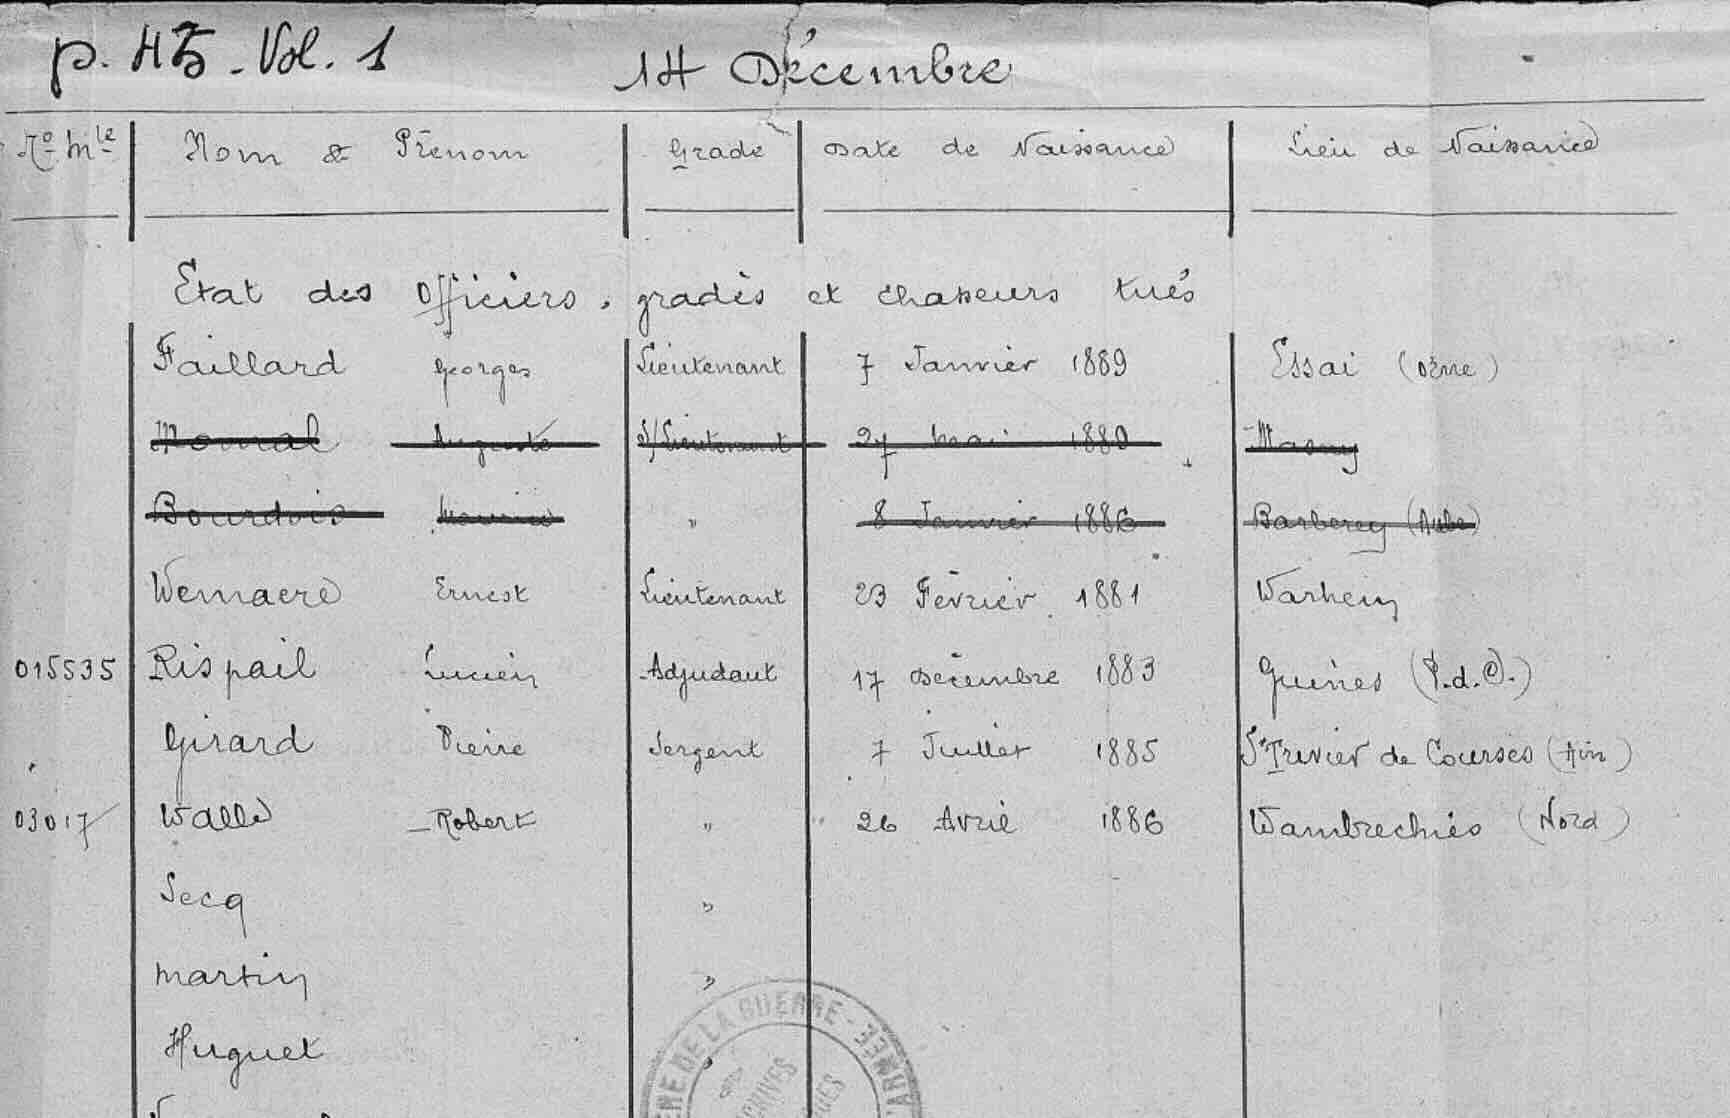 p. 45 - Vol. 1
14 Décembre
No Mle Nom & Prénom Grade Date de Naissance Lieu de Naissance
Etat des Officiers, gradés et chasseurs tués
Faillard Georges Lieutenant 7 Janvier 1889 Essai (Orne)
Auguste S/Lieutenant 27 Mai 1880 Masny
Bourdois Maurice " 8 Janvier 1886 Barberey (Aube)
Wemaere Ernest Lieutenant 23 Février 1881 Warhem
015535 Rispail Lucien Adjudant 17 Décembre 1883 Guines (P.d.C.)
Girard Pierre Sergent 7 Juillet 1885 St Trivier de Courses (Ain)
03017 Walle Robert " 26 Avril 1886 Wambrechies (Nord)
Secq "
Martin "
Huguet "
DE LA GUERRE - ARMEE